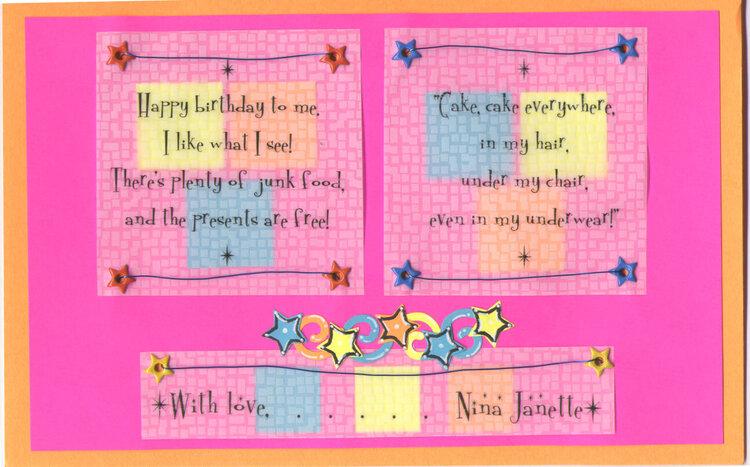 Happy birthday to me,
I like what I see!
There's plenty of junk food,
and the presents are free!
"Cake, cake everywhere,
in my hair,
under my chair,
even in my underwear!"
With love, . . . . . . Nina Janette